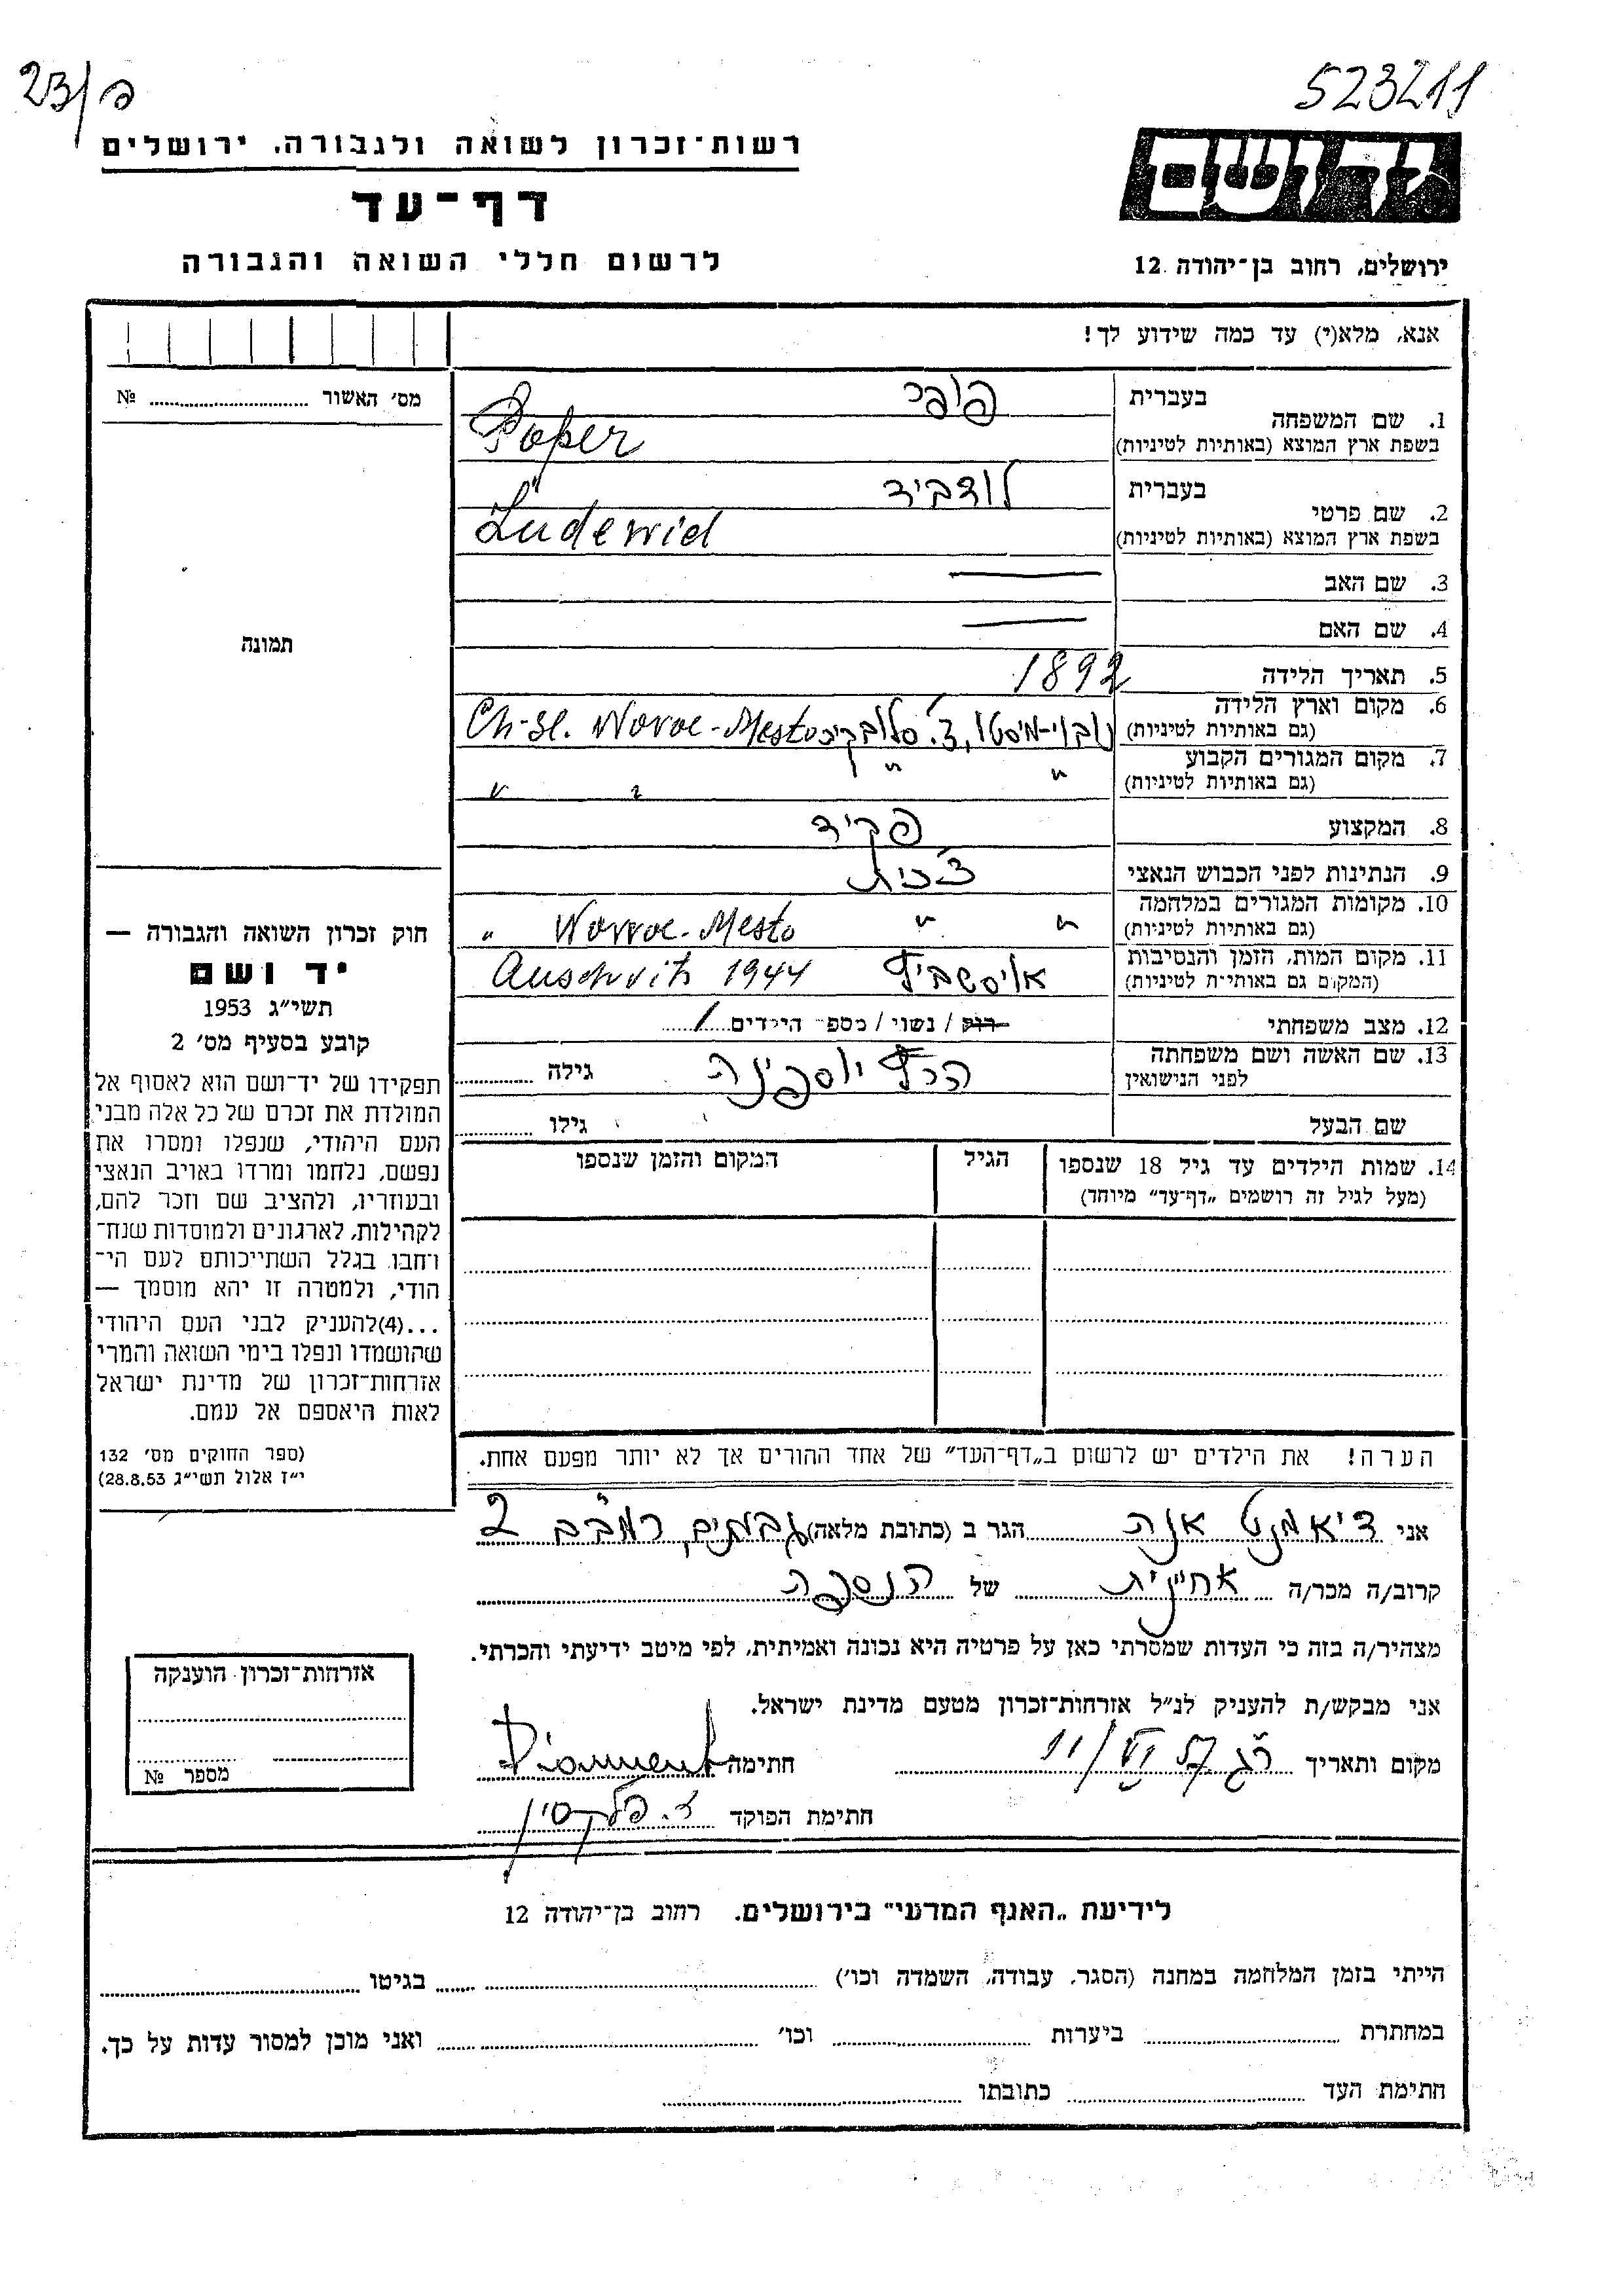 523211
23/פ
יד ושם
רשות־זכרון לשואה ולגבורה, ירושלים
דף־עד
לרשום חללי השואה והגבורה
ירושלים, רחוב בן־יהודה 12
אנא, מלא(י) עד כמה שידוע לך!
מס׳ האשור № 
1. שם המשפחה
בעברית פופר
בשפת ארץ המוצא (באותיות לטיניות) Poper
2. שם פרטי
בעברית לודביד
בשפת ארץ המוצא (באותיות לטיניות) Ludewid
3. שם האב —
4. שם האם —
תמונה
5. תאריך הלידה 1892
6. מקום וארץ הלידה
(גם באותיות לטיניות) נובי-מיסטו, צ׳. סלובקיה Ch-sl. Novoe-Mesto
7. מקום המגורים הקבוע
(גם באותיות לטיניות) " " " "
8. המקצוע פקיד
9. הנתינות לפני הכבוש הנאצי צ׳כית
10. מקומות המגורים במלחמה
(גם באותיות לטיניות) " " Novoe-Mesto "
11. מקום המות, הזמן והנסיבות
(המקום גם באותיות לטיניות) אוישביץ Auschvitz 1944
12. מצב משפחתי רוק / נשוי / מספר הילדים 1
13. שם האשה ושם משפחתה
לפני הנישואין הרץ יוספינה גילה
שם הבעל גילו
14. שמות הילדים עד גיל 18 שנספו
(מעל לגיל זה רושמים „דף־עד” מיוחד)
הגיל
המקום והזמן שנספו
חוק זכרון השואה והגבורה —
יד ושם
תשי״ג 1953
קובע בסעיף מס׳ 2
תפקידו של יד־ושם הוא לאסוף אל
המולדת את זכרם של כל אלה מבני
העם היהודי, שנפלו ומסרו את
נפשם, נלחמו ומרדו באויב הנאצי
ובעוזריו, ולהציב שם וזכר להם,
לקהילות, לארגונים ולמוסדות שנח־
רחבו בגלל השתייכותם לעם הי־
הודי, ולמטרה זו יהא מוסמך —
...(4)להעניק לבני העם היהודי
שהושמדו ונפלו בימי השואה והמרי
אזרחות־זכרון של מדינת ישראל
לאות היאספם אל עמם.
(ספר החוקים מס׳ 132
י״ז אלול תשי״ג 28.8.53)
הערה! את הילדים יש לרשום ב„דף־העד” של אחד ההורים אך לא יותר מפעם אחת.
אני דיאמנט אנה הגר ב (כתובת מלאה) גבעתיים, רמב״ם 2
קרוב/ה מכר/ה אחינית של הנספה
מצהיר/ה בזה כי העדות שמסרתי כאן על פרטיה היא נכונה ואמיתית, לפי מיטב ידיעתי והכרתי.
אני מבקש/ת להעניק לנ״ל אזרחות־זכרון מטעם מדינת ישראל.
מקום ותאריך רג 11/VI 57 חתימה Diamant
חתימת הפוקד
אזרחות־זכרון הוענקה
מספר №
לידיעת „האגף המדעי” בירושלים, רחוב בן־יהודה 12
הייתי בזמן המלחמה במחנה (הסגר, עבודה, השמדה וכו׳) בגיטו
במחתרת ביערות וכו׳ ואני מוכן למסור עדות על כך.
חתימת העד כתובתו